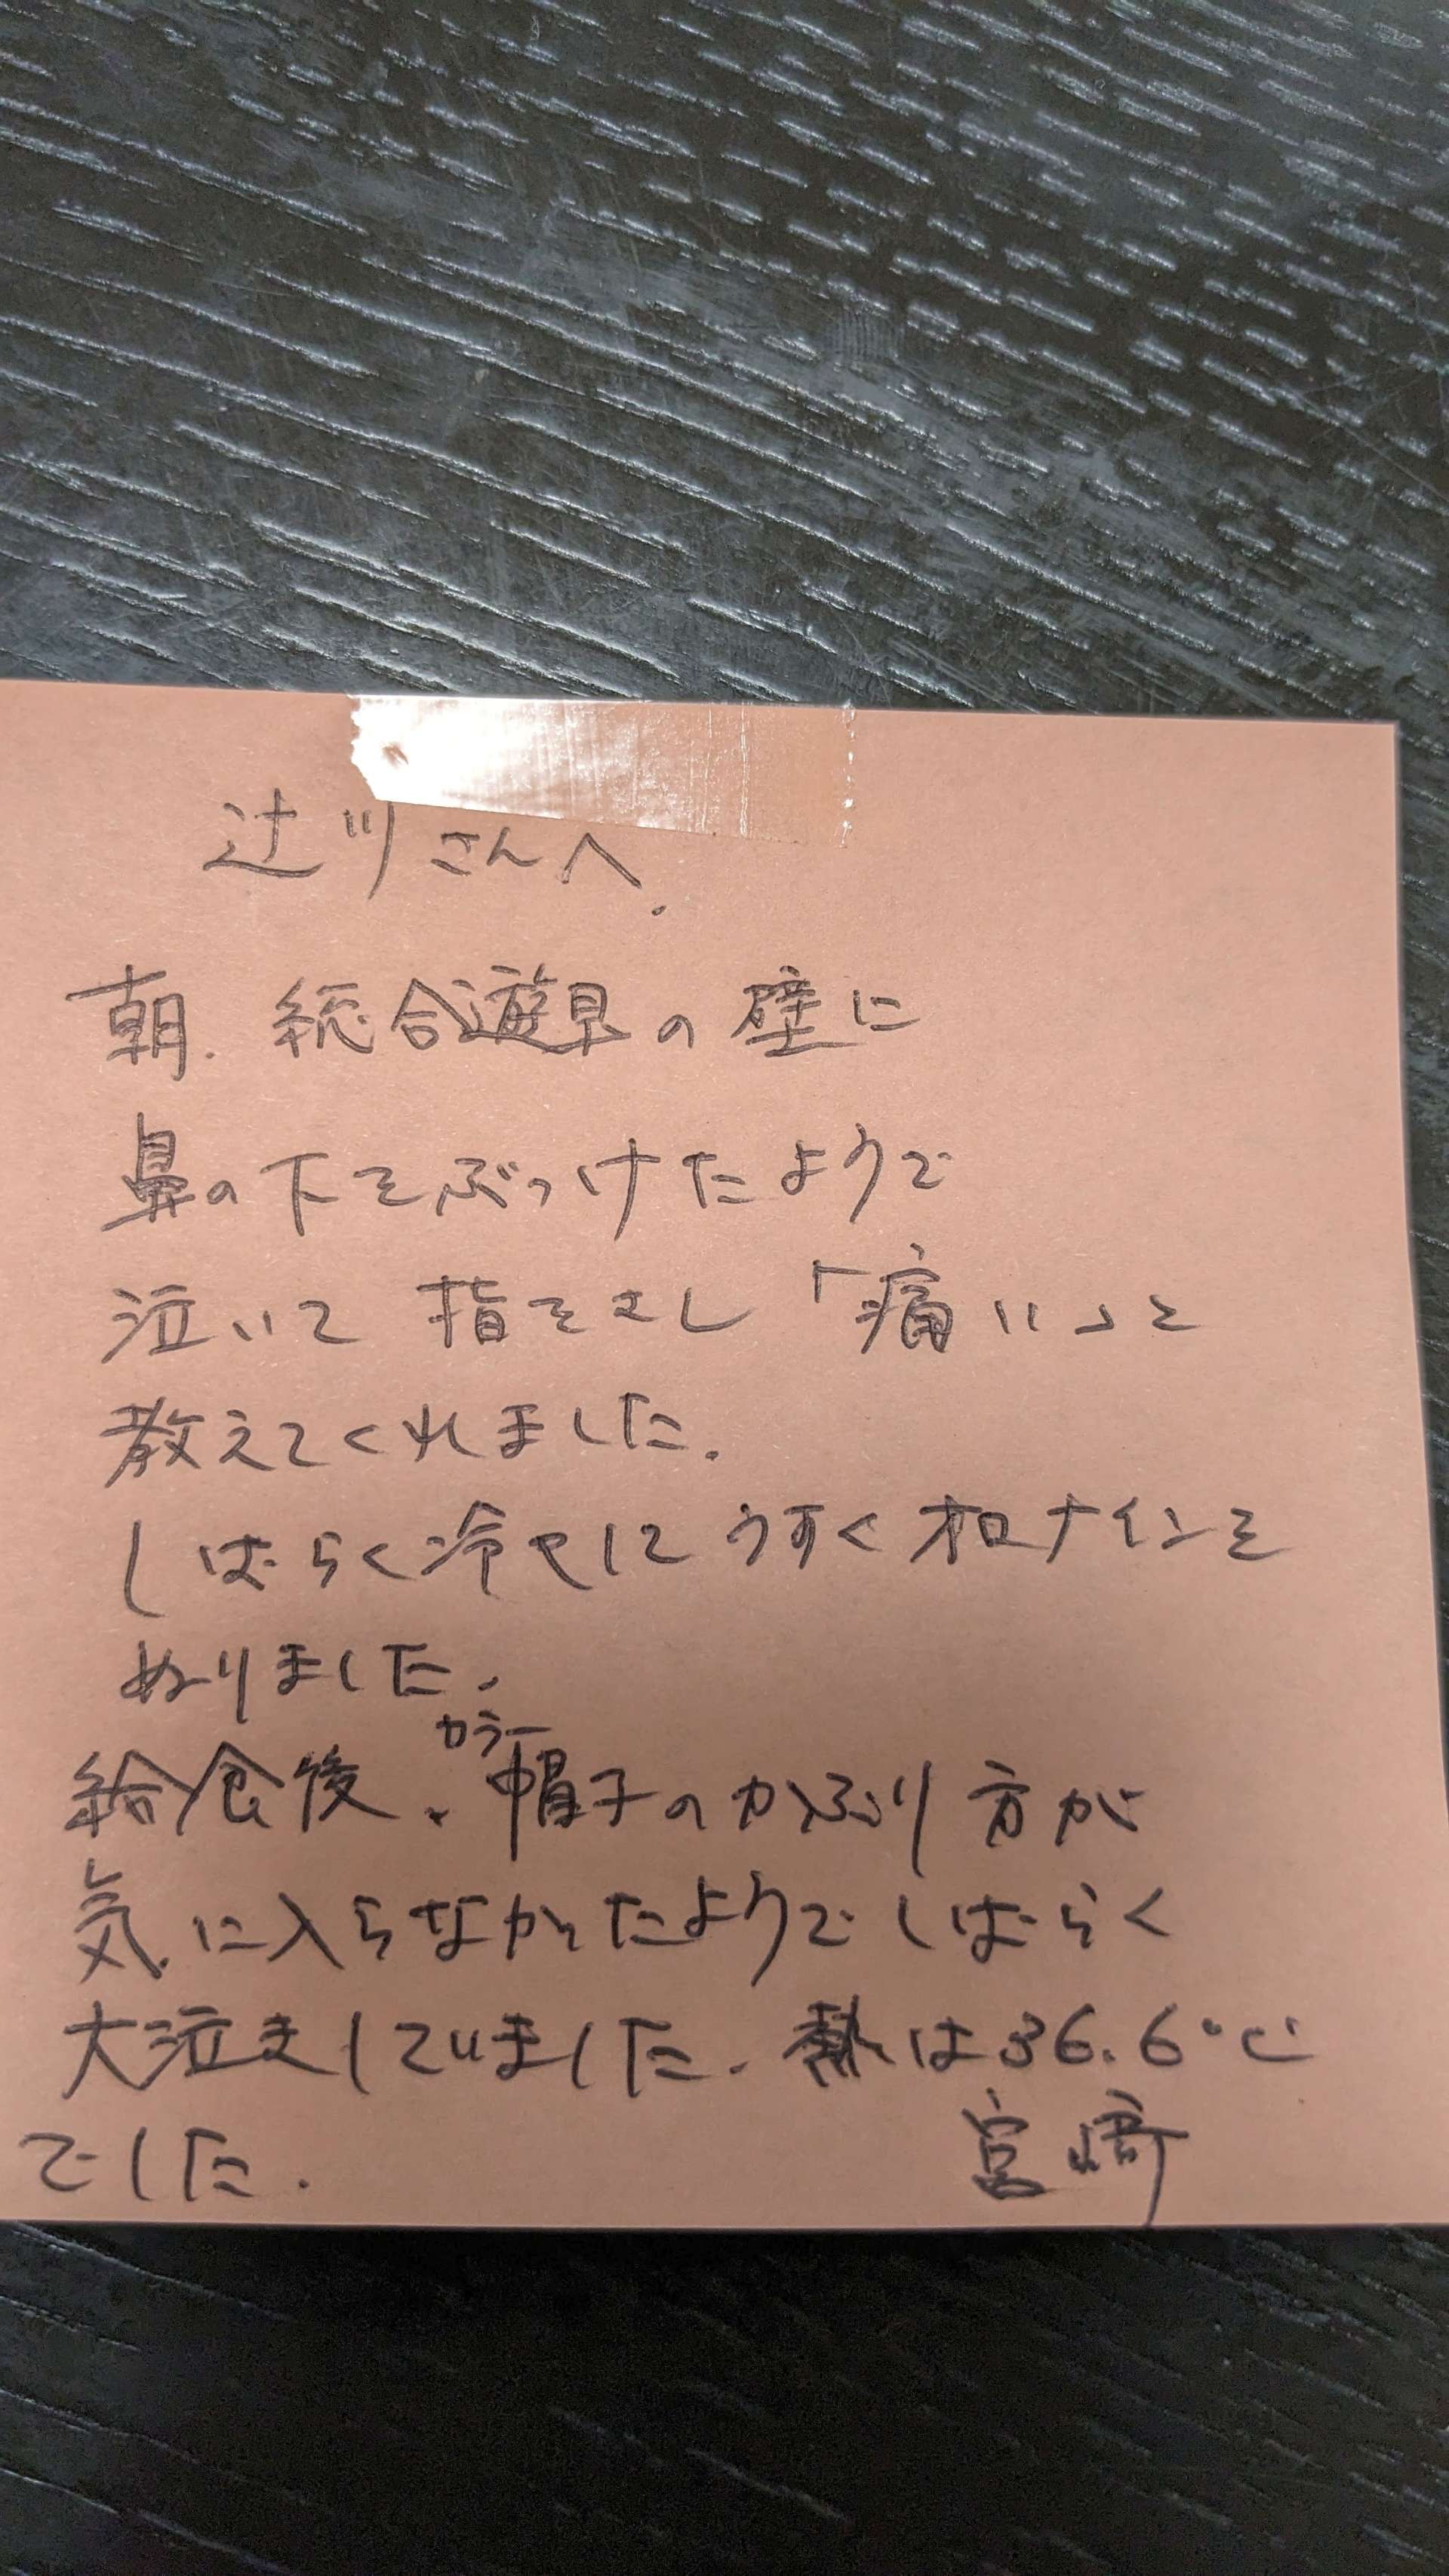 辻リさんへ.
朝. 総合遊具の壁に
鼻の下をぶつけたようで
泣いて 指をさし「痛い」と
教えてくれました.
しばらく冷やして うすくオロナインを
ぬりました.
給食後、カラー帽子のかぶり方が
気に入らなかったようでしばらく
大泣きしていました. 熱は36.6℃
でした.
宮﨑